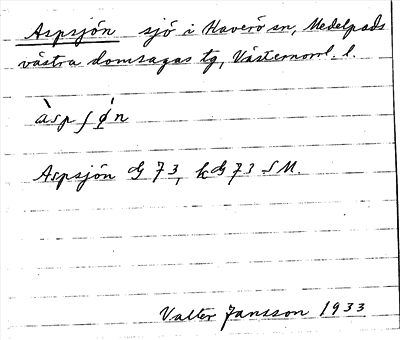 Aspsjön sjö i Haverö sn, Medelpads
västra domsagas tg, Västernorrl. l.
àspʃǿn
Aspsjön G 73, kG 73 SM.
Valter Jansson 1933